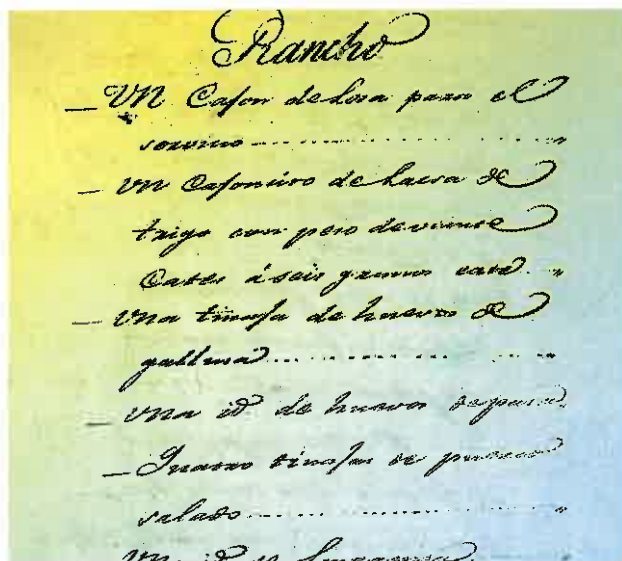 Rancho
— Un Cajon de losa para el
servicio
— Un Cajoncito de harina de
trigo con peso de
Cates á seis gramos cate
— Una tinaja de huevos de
gallina
— Una id de huevos de pata
— Quatro tinajas de puerco
salado
Un id de